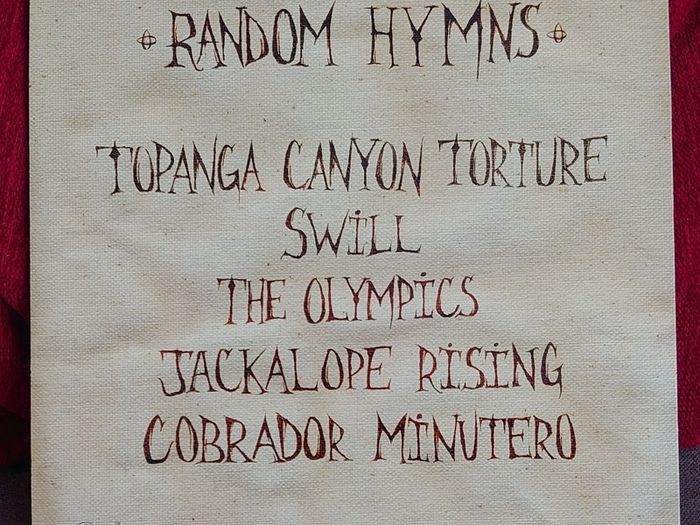 RANDOM HYMNS
TOPANGA CANYON TORTURE
SWILL
THE OLYMPICS
JACKALOPE RISING
COBRADOR MINUTERO